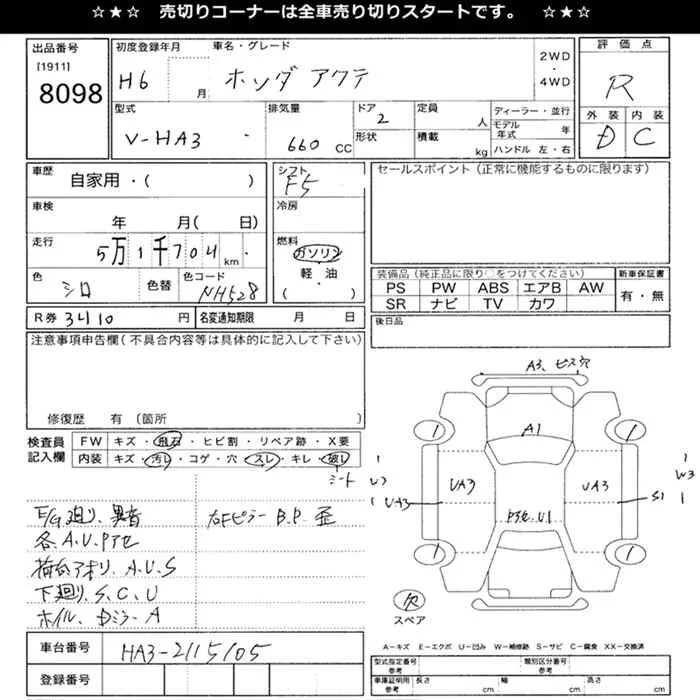 ☆★☆ 売切りコーナーは全車売り切りスタートです。 ☆★☆
出品番号 初度登録年月 車名・グレード 評価点
[1911] 2WD・4WD
8098 H6 月 ホンダ アクティ R
型式 排気量 ドア 定員 ディーラー・並行 外装 内装
2 人 モデル年式 年
V-HA3 660 CC 形状 積載 kg ハンドル 左・右 D C
車歴 自家用・( ) シフト F5 セールスポイント(正常に機能するものに限ります)
車検 年 月( 日) 冷房
走行 5万1千704km 燃料 ガソリン・軽油・( )
色 シロ 色替 色コード NH528 装備品(純正品に限り○をつけてください) 新車保証書
PS PW ABS エアB AW 有・無
SR ナビ TV カワ
R券 3410 円 名変通知期限 月 日 後日品
注意事項申告欄(不具合内容等は具体的に記入して下さい)
修復歴 有(箇所 )
検査員記入欄 FW キズ・飛石・ヒビ割・リペア跡・X要
内装 キズ・汚レ・コゲ・穴・スレ・キレ・破レ
シート
F/G廻り、異音 右Fピラー B.P.歪
各A.U.Pアセ
荷台アオリ A.U.S
下廻り S.C.U
ホイル、Dミラー A
A3、ビス穴
A1
1 1
W3 UA3 UA3 W3
UA3 S1
Pアセ.U1
1 1
欠
スペア
A-キズ E-エクボ U-凹み W-補修跡 S-サビ C-腐食 XX-交換済
車台番号 HA3-2115105 型式指定番号 参考 類別区分番号 参考
登録番号 車庫証明用参考 長さ cm 幅 cm 高さ cm